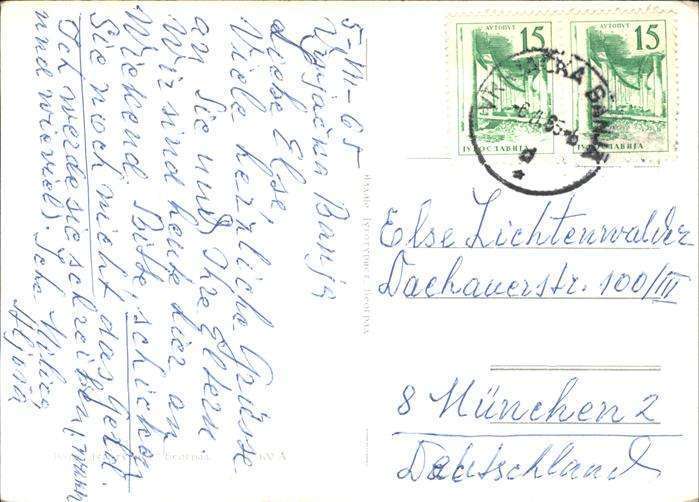 5.VI-65
Vrnjačka Banja
Liebe Else,
Viele herzliche Grüsse
an Sie und Ihre Eltern.
Wir sind heute hier an
Wickend. Bitte, schicken
Sie noch nicht das Geld.
Ich werde sie schreiben, wann
und wieviel). Ihre Milica,
АУТОПУТ 15
ЈУГОСЛАВИЈА
АУТОПУТ 15
ЈУГОСЛАВИЈА
Else Lichtenwalder
Dachauerstr. 100/III
8 München 2
Deutschland